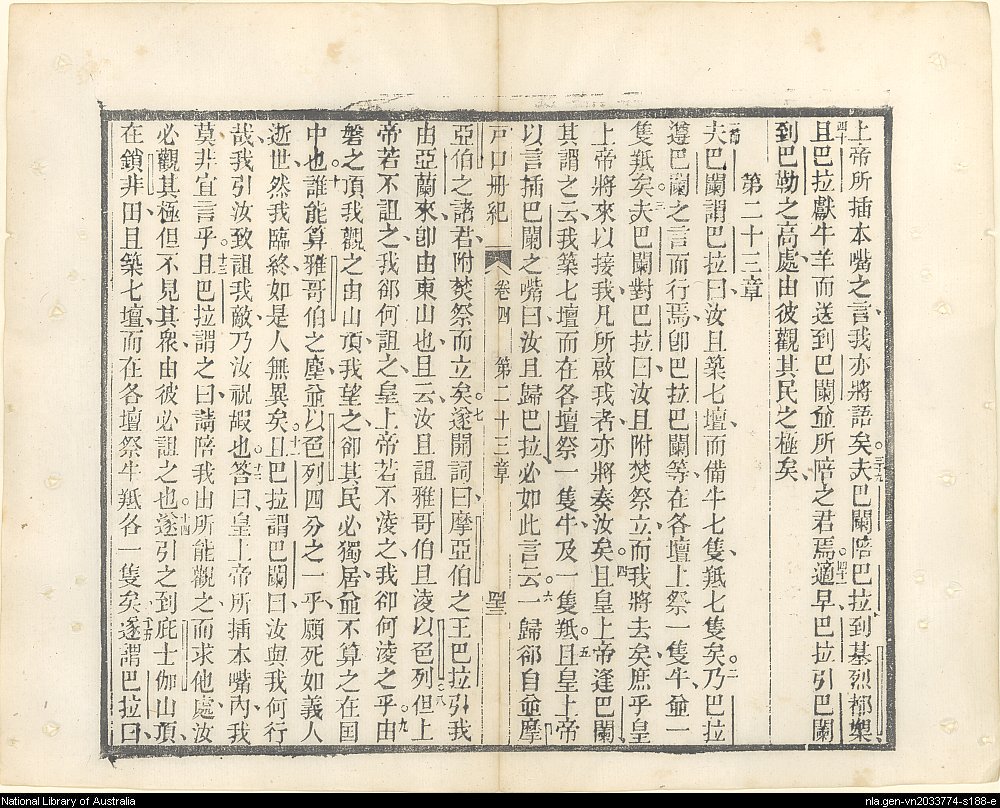 上帝所插本嘴之言我亦將語矣。三十九夫巴闌陪巴拉到基烈都櫐、
四十且巴拉獻牛羊而送到巴闌並所陪之君焉。四十一適早巴拉引巴闌
到巴勒之高處由彼觀其民之極矣、
第二十三章
一節夫巴闌謂巴拉曰汝且築七壇而備牛七隻羝七隻矣。二乃巴拉
遵巴闌之言而行焉卽巴拉巴闌等在各壇上祭一隻牛並一
隻羝矣。三夫巴闌對巴拉曰汝且附焚祭立而我將去矣庶乎皇
上帝將來以接我凡所啟我者亦將奏汝矣。四且皇上帝逢巴闌
其謂之云我築七壇而在各壇祭一隻牛及一隻羝。五且皇上帝
以言插巴闌之嘴曰汝且歸巴拉必如此言云。六一歸郤自並摩
戶口册紀 卷四 第二十三章 四三
亞伯之諸君附焚祭而立矣。七遂開詞曰摩亞伯之王巴拉引我
由亞蘭來卽由東山也且云汝且詛雅哥伯且淩以色列。八但上
帝若不詛之我郤何詛之皇上帝若不淩之我卻何淩之乎。九由
磐之頂我觀之由山頂我望之卻其民必獨居並不算之在国
中也。十誰能算雅哥伯之塵並以色列四分之一乎願死如義人
逝世然我臨終如是人無異矣。十一且巴拉謂巴闌曰汝與我何行
哉我引汝致詛我敵乃汝祝嘏也。十二答曰皇上帝所插本嘴內我
莫非宜言乎。十三且巴拉謂之曰請陪我由所能觀之而求他處汝
必觀其極但不見其衆由彼必詛之也。十四遂引之到庇士伽山頂
在鎖非田且築七壇而在各壇祭牛羝各一隻矣。十五遂謂巴拉曰
National Library of Australia
nla.gen-vn2033774-s188-e